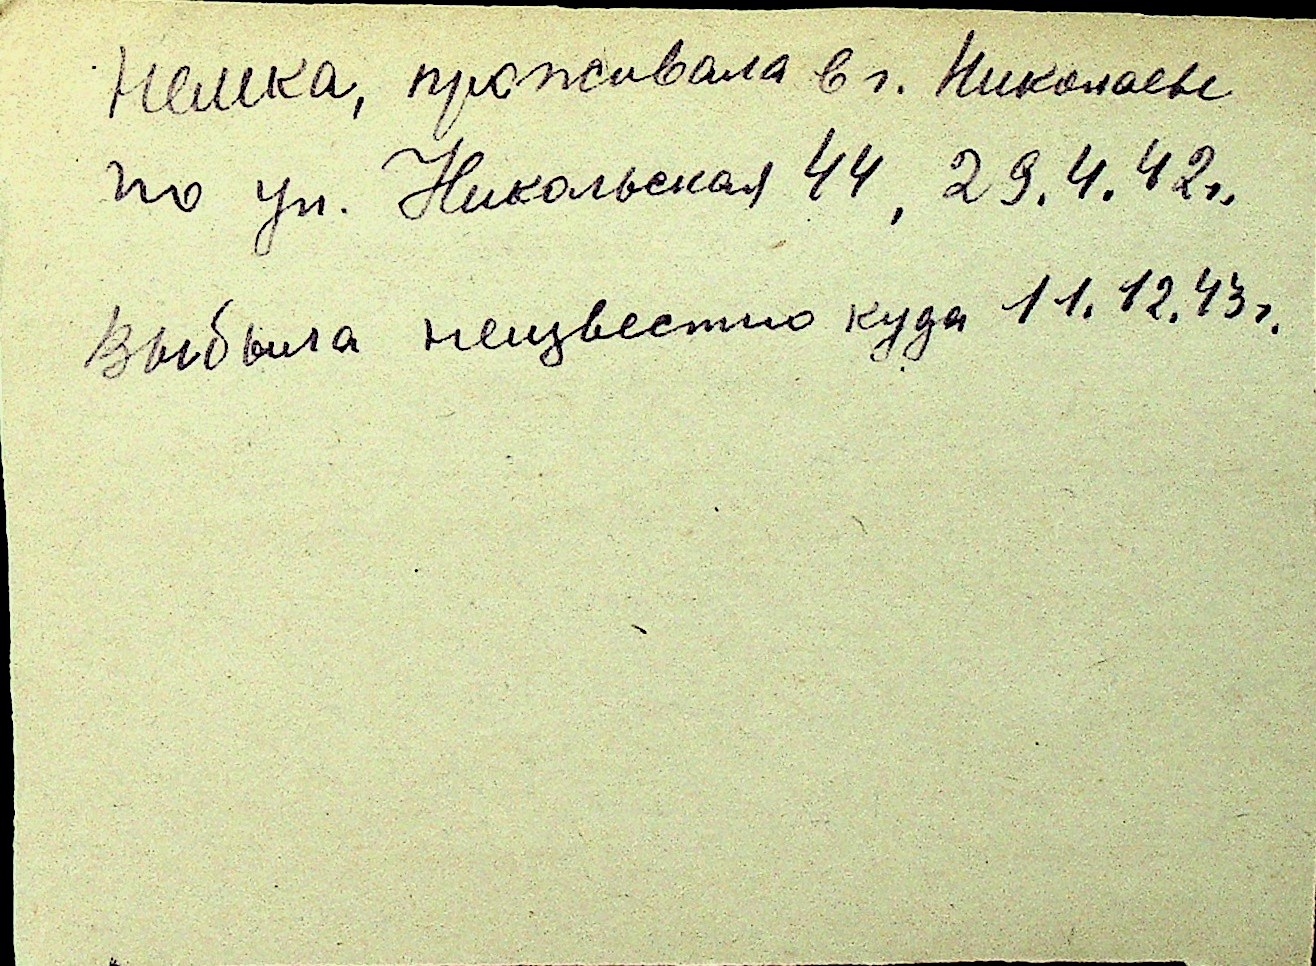 Немка, проживала в г. Николаеве
по ул. Никольская 44, 29.4.42г.
Выбыла неизвестно куда 11.12.43г.